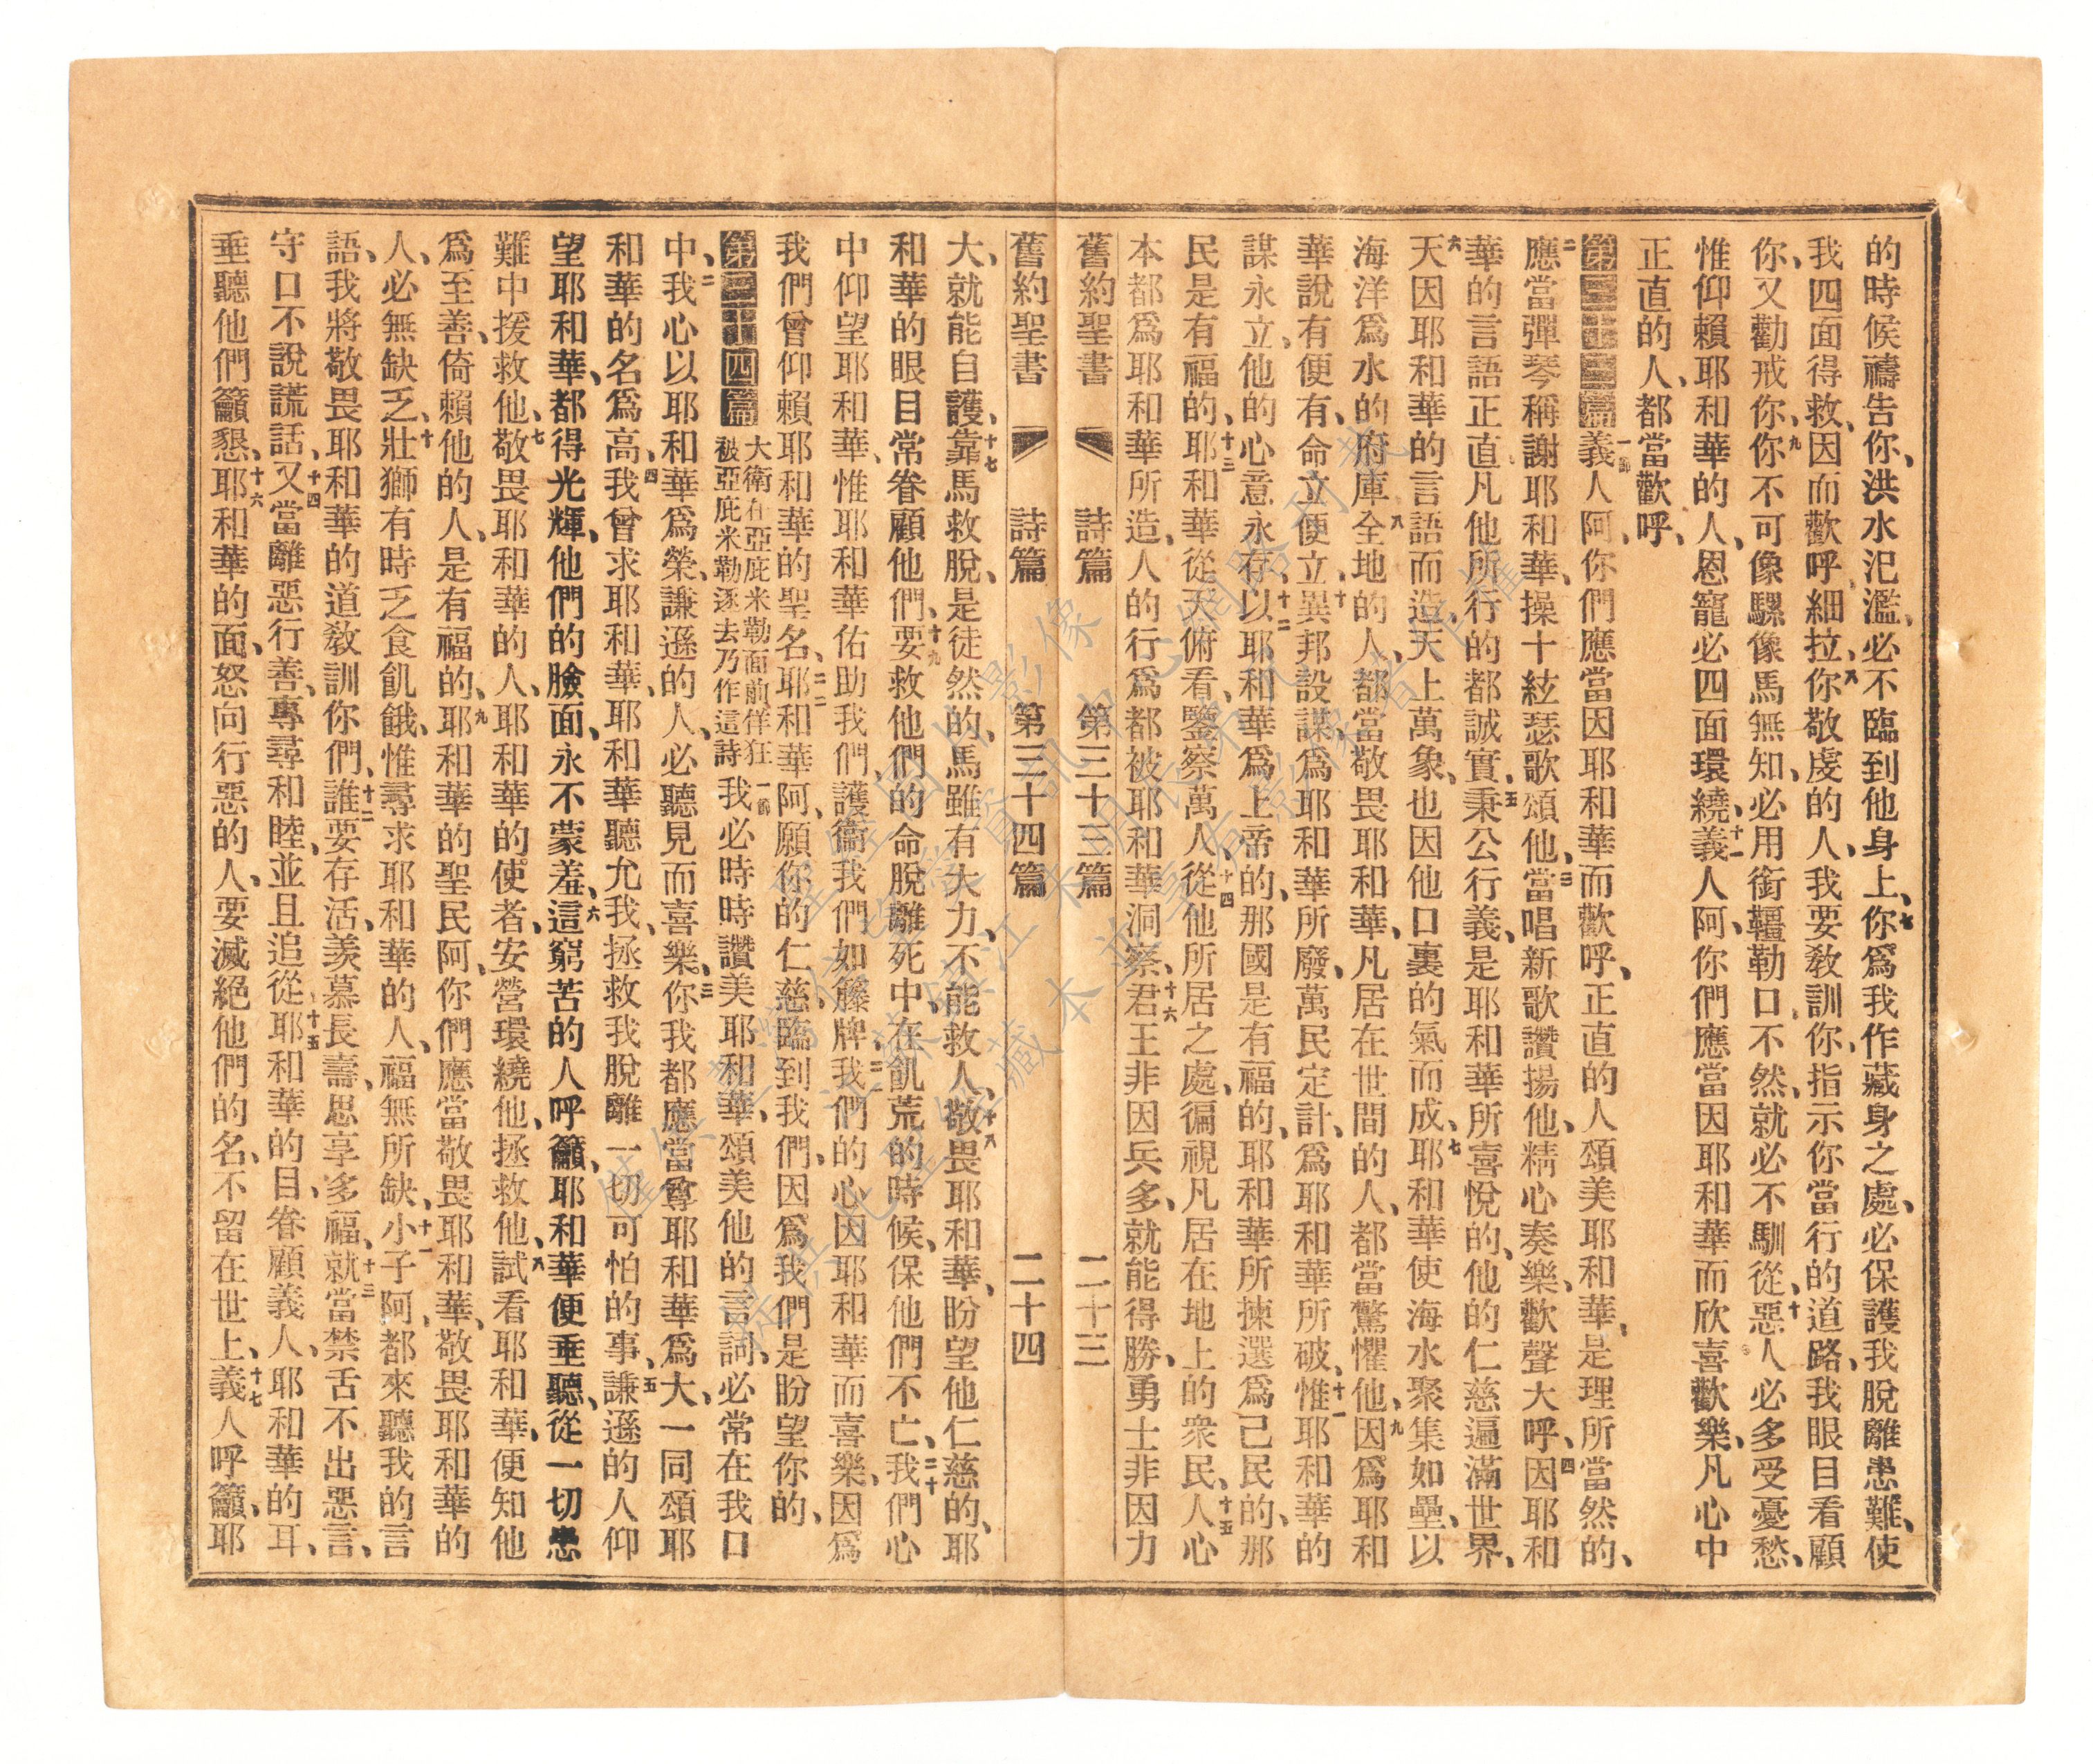 的時候禱告你、洪水氾濫、必不臨到他身上、七你爲我作藏身之處、必保護我脫離患難、使
我四面得救、因而歡呼細拉、八你敬虔的人、我要敎訓你、指示你當行的道路、我眼目看顧
你、又勸戒你、九你不可像騾像馬無知、必用銜韁勒口、不然、就必不馴從、十惡人必多受憂愁、
惟仰賴耶和華的人、恩寵必四面環繞、十一義人阿、你們應當因耶和華而欣喜歡樂、凡心中
正直的人、都當歡呼、
第三十三篇一節義人阿、你們應當因耶和華而歡呼、正直的人頌美耶和華、是理所當然的、
二應當彈琴稱謝耶和華、操十絃瑟歌頌他、三當唱新歌讚揚他、精心奏樂、歡聲大呼、四因耶和
華的言語正直、凡他所行的都誠實、五秉公行義、是耶和華所喜悅的、他的仁慈遍滿世界、
六天因耶和華的言語而造、天上萬象、也因他口裏的氣而成、七耶和華使海水聚集如壘、以
海洋爲水的府庫、八全地的人、都當敬畏耶和華、凡居在世間的人、都當驚懼他、九因爲耶和
華說有便有、命立便立、十異邦設謀、爲耶和華所廢、萬民定計、爲耶和華所破、十一惟耶和華的
謀永立、他的心意永存、十二以耶和華爲上帝的、那國是有福的、耶和華所揀選爲己民的、那
民是有福的、十三耶和華從天俯看、鑒察萬人、十四從他所居之處、徧視凡居在地上的衆民、十五人心
本都爲耶和華所造、人的行爲都被耶和華洞察、十六君王非因兵多、就能得勝、勇士非因力
舊約聖書 詩篇 第三十三篇 二十三
舊約聖書 詩篇 第三十四篇 二十四
大、就能自護、十七靠馬救脫、是徒然的、馬雖有大力、不能救人、十八敬畏耶和華、盼望他仁慈的、耶
和華的眼目常眷顧他們、十九要救他們的命脫離死中、在飢荒的時候、保他們不亡、二十我們心
中仰望耶和華、惟耶和華佑助我們、護衞我們如籐牌、二一我們的心因耶和華而喜樂、因爲
我們曾仰賴耶和華的聖名、二二耶和華阿、願你的仁慈、臨到我們、因爲我們是盼望你的、
第三十四篇大衛在亞庇米勒面前佯狂被亞庇米勒逐去乃作這詩一節我必時時讚美耶和華、頌美他的言詞、必常在我口
中、二我心以耶和華爲榮、謙遜的人、必聽見而喜樂、三你我都應當尊耶和華爲大、一同頌耶
和華的名爲高、四我曾求耶和華、耶和華聽允我、拯救我脫離一切可怕的事、五謙遜的人仰
望耶和華、都得光輝、他們的臉面、永不蒙羞、六這窮苦的人呼籲、耶和華便垂聽、從一切患
難中援救他、七敬畏耶和華的人、耶和華的使者、安營環繞他、拯救他、八試看耶和華、便知他
爲至善、倚賴他的人、是有福的、九耶和華的聖民阿、你們應當敬畏耶和華、敬畏耶和華的
人、必無缺乏、十壯獅有時乏食飢餓、惟尋求耶和華的人、福無所缺、十一小子阿、都來聽我的言
語、我將敬畏耶和華的道敎訓你們、十二誰要存活、羨慕長壽、思享多福、十三就當禁舌不出惡言、
守口不說謊話、十四又當離惡行善、專尋和睦、並且追從、十五耶和華的目、眷顧義人、耶和華的耳、
垂聽他們籲懇、十六耶和華的面、怒向行惡的人、要滅絕他們的名、不留在世上、十七義人呼籲、耶